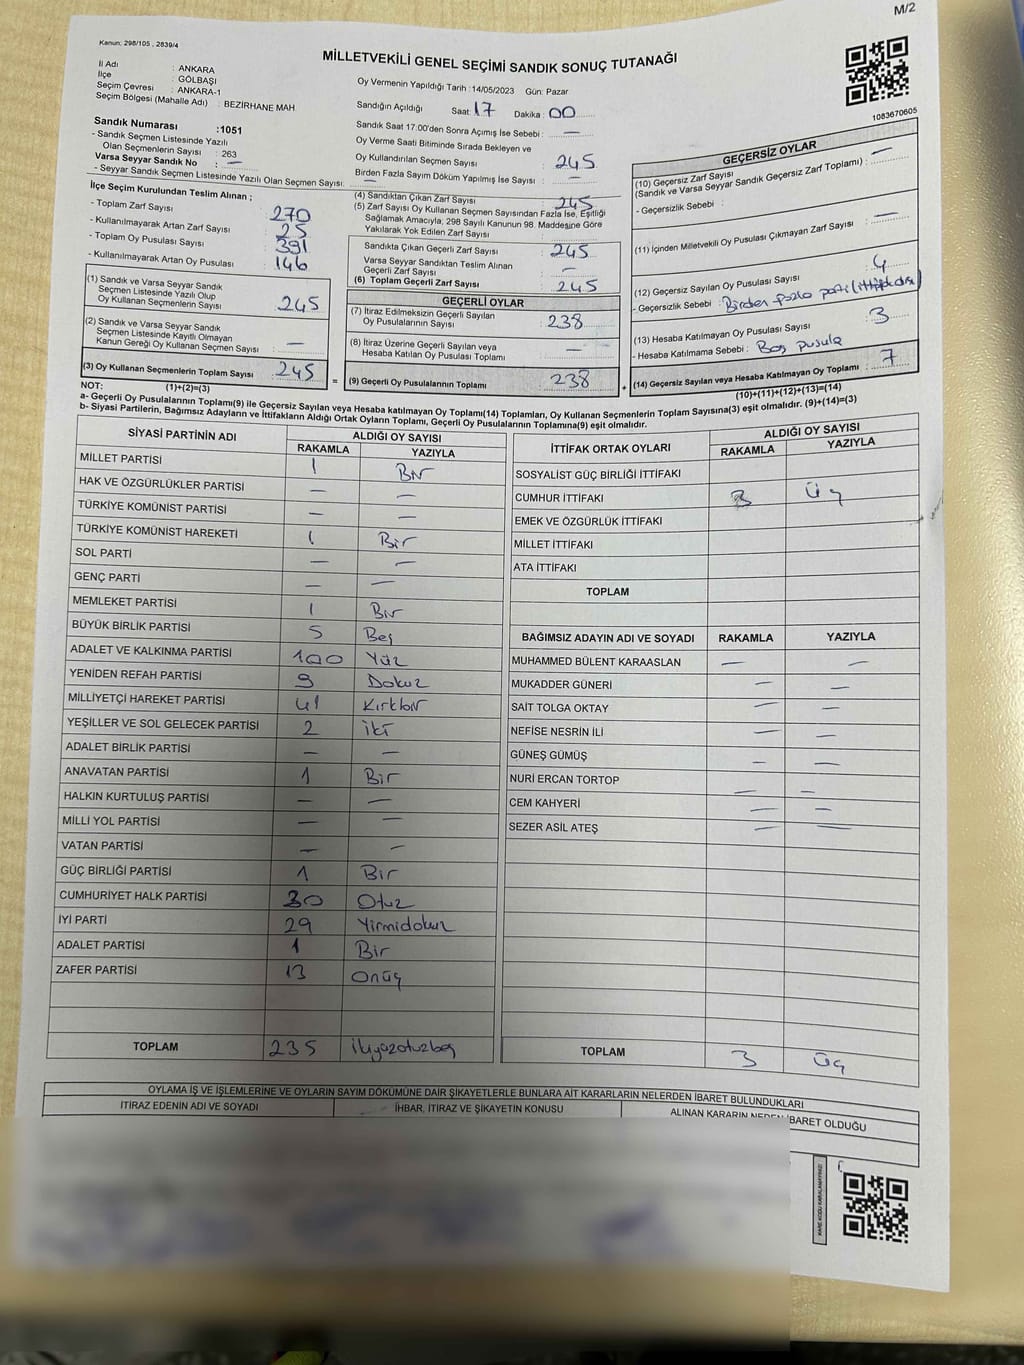 M/2
Kanun: 298/105 , 2839/4
MİLLETVEKİLİ GENEL SEÇİMİ SANDIK SONUÇ TUTANAĞI
İl Adı : ANKARA
İlçe : GÖLBAŞI
Seçim Çevresi : ANKARA-1
Seçim Bölgesi (Mahalle Adı) : BEZİRHANE MAH
Oy Vermenin Yapıldığı Tarih : 14/05/2023 Gün: Pazar
Sandığın Açıldığı Saat: 17 Dakika : 00
1083670605
Sandık Numarası :1051
- Sandık Seçmen Listesinde Yazılı
Olan Seçmenlerin Sayısı : 263
Varsa Seyyar Sandık No : —
- Seyyar Sandık Seçmen Listesinde Yazılı Olan Seçmen Sayısı: —
Sandık Saat 17:00'den Sonra Açımış İse Sebebi : —
Oy Verme Saati Bitiminde Sırada Bekleyen ve
Oy Kullandırılan Seçmen Sayısı : 245
Birden Fazla Sayım Döküm Yapılmış İse Sayısı : —
İlçe Seçim Kurulundan Teslim Alınan ;
- Toplam Zarf Sayısı : 270
- Kullanılmayarak Artan Zarf Sayısı : 25
- Toplam Oy Pusulası Sayısı : 391
- Kullanılmayarak Artan Oy Pusulası : 146
(1) Sandık ve Varsa Seyyar Sandık
Seçmen Listesinde Yazılı Olup
Oy Kullanan Seçmenlerin Sayısı : 245
(2) Sandık ve Varsa Seyyar Sandık
Seçmen Listesinde Kayıtlı Olmayan
Kanun Gereği Oy Kullanan Seçmen Sayısı : —
(3) Oy Kullanan Seçmenlerin Toplam Sayısı : 245
(4) Sandıktan Çıkan Zarf Sayısı : 245
(5) Zarf Sayısı Oy Kullanan Seçmen Sayısından Fazla İse, Eşitliği
Sağlamak Amacıyla; 298 Sayılı Kanunun 98. Maddesine Göre
Yakılarak Yok Edilen Zarf Sayısı :
Sandıkta Çıkan Geçerli Zarf Sayısı : 245
Varsa Seyyar Sandıktan Teslim Alınan
Geçerli Zarf Sayısı : —
(6) Toplam Geçerli Zarf Sayısı : 245
GEÇERLİ OYLAR
(7) İtiraz Edilmeksizin Geçerli Sayılan
Oy Pusulalarının Sayısı : 238
(8) İtiraz Üzerine Geçerli Sayılan veya
Hesaba Katılan Oy Pusulası Toplamı : —
= (9) Geçerli Oy Pusulalarının Toplamı : 238 +
GEÇERSİZ OYLAR
(10) Geçersiz Zarf Sayısı
(Sandık ve Varsa Seyyar Sandık Geçersiz Zarf Toplamı) : —
- Geçersizlik Sebebi :
(11) İçinden Milletvekili Oy Pusulası Çıkmayan Zarf Sayısı : —
(12) Geçersiz Sayılan Oy Pusulası Sayısı : 4
- Geçersizlik Sebebi : Birden fazla parti (ittifak dışı)
(13) Hesaba Katılmayan Oy Pusulası Sayısı : 3
- Hesaba Katılmama Sebebi : Boş pusula
(14) Geçersiz Sayılan veya Hesaba Katılmayan Oy Toplamı : 7
NOT: (1)+(2)=(3) (10)+(11)+(12)+(13)=(14)
a- Geçerli Oy Pusulalarının Toplamı(9) ile Geçersiz Sayılan veya Hesaba katılmayan Oy Toplamı(14) Toplamları, Oy Kullanan Seçmenlerin Toplam Sayısına(3) eşit olmalıdır. (9)+(14)=(3)
b- Siyasi Partilerin, Bağımsız Adayların ve İttifakların Aldığı Ortak Oyların Toplamı, Geçerli Oy Pusulalarının Toplamına(9) eşit olmalıdır.
SİYASİ PARTİNİN ADI ALDIĞI OY SAYISI
RAKAMLA YAZIYLA
MİLLET PARTİSİ 1 Bir
HAK VE ÖZGÜRLÜKLER PARTİSİ — —
TÜRKİYE KOMÜNİST PARTİSİ — —
TÜRKİYE KOMÜNİST HAREKETİ 1 Bir
SOL PARTİ — —
GENÇ PARTİ — —
MEMLEKET PARTİSİ 1 Bir
BÜYÜK BİRLİK PARTİSİ 5 Beş
ADALET VE KALKINMA PARTİSİ 100 Yüz
YENİDEN REFAH PARTİSİ 9 Dokuz
MİLLİYETÇİ HAREKET PARTİSİ 41 Kırkbir
YEŞİLLER VE SOL GELECEK PARTİSİ 2 iki
ADALET BİRLİK PARTİSİ — —
ANAVATAN PARTİSİ 1 Bir
HALKIN KURTULUŞ PARTİSİ — —
MİLLİ YOL PARTİSİ — —
VATAN PARTİSİ — —
GÜÇ BİRLİĞİ PARTİSİ 1 Bir
CUMHURİYET HALK PARTİSİ 30 Otuz
İYİ PARTİ 29 Yirmidokuz
ADALET PARTİSİ 1 Bir
ZAFER PARTİSİ 13 Onüç
TOPLAM 235 ikiyüzotuzbeş
İTTİFAK ORTAK OYLARI ALDIĞI OY SAYISI
RAKAMLA YAZIYLA
SOSYALİST GÜÇ BİRLİĞİ İTTİFAKI
CUMHUR İTTİFAKI 3 Üç
EMEK VE ÖZGÜRLÜK İTTİFAKI
MİLLET İTTİFAKI
ATA İTTİFAKI
TOPLAM
BAĞIMSIZ ADAYIN ADI VE SOYADI RAKAMLA YAZIYLA
MUHAMMED BÜLENT KARAASLAN — —
MUKADDER GÜNERİ — —
SAİT TOLGA OKTAY — —
NEFİSE NESRİN İLİ — —
GÜNEŞ GÜMÜŞ — —
NURİ ERCAN TORTOP — —
CEM KAHYERİ — —
SEZER ASİL ATEŞ — —
TOPLAM 3 Üç
OYLAMA İŞ VE İŞLEMLERİNE VE OYLARIN SAYIM DÖKÜMÜNE DAİR ŞİKAYETLERLE BUNLARA AİT KARARLARIN NELERDEN İBARET BULUNDUKLARI
İTİRAZ EDENİN ADI VE SOYADI İHBAR, İTİRAZ VE ŞİKAYETİN KONUSU ALINAN KARARIN NEDEN İBARET OLDUĞU
KARE KODU KARALAMAYINIZ!